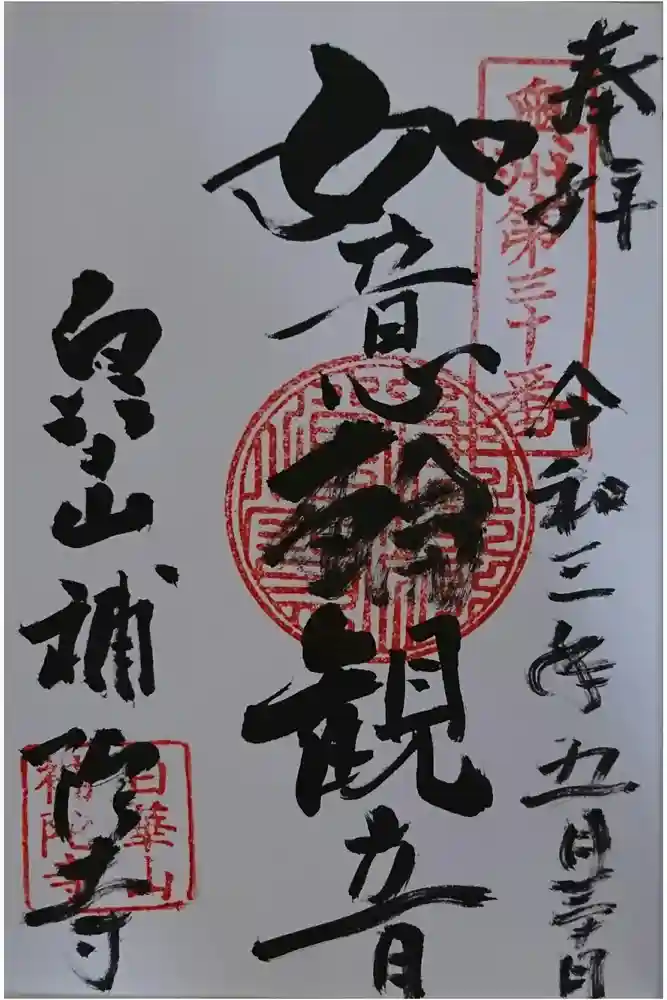 奉拝 令和三年五月三十日
奥州第三十番
如意輪観音
白華山補陀寺
白華山
補陀寺